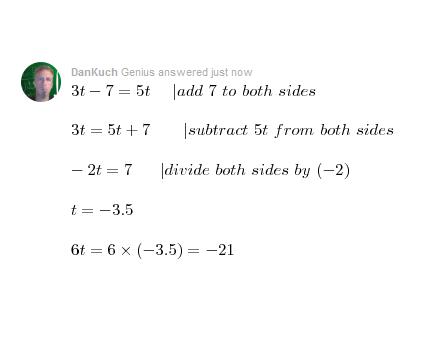 DanKuch Genius answered just now
3t − 7 = 5t |add 7 to both sides
3t = 5t + 7 |subtract 5t from both sides
− 2t = 7 |divide both sides by (−2)
t = −3.5
6t = 6 × (−3.5) = −21